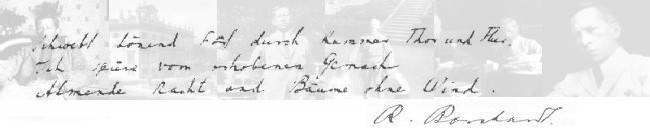 schwebt tönend Fuß durch Kammer Thor und Flur.
Ich spüre vom erhobenen Gemach
Atmende Nacht und Bäume ohne Wind.
R. Borchardt.